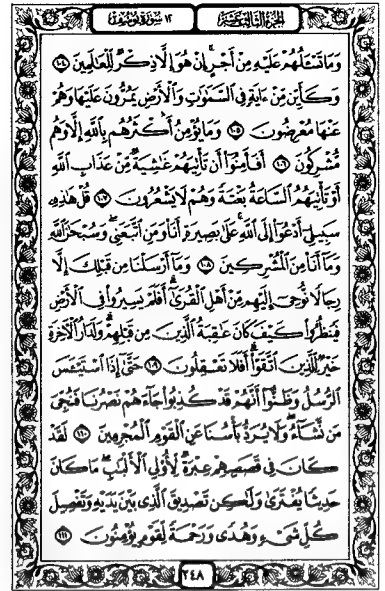 الجزء الثالث عشر ١٢ سورة يوسف
وَمَا تَسْـَٔلُهُمْ عَلَيْهِ مِنْ أَجْرٍ ۚ إِنْ هُوَ إِلَّا ذِكْرٌ لِّلْعَٰلَمِينَ ١٠٤
وَكَأَيِّن مِّنْ ءَايَةٍ فِى ٱلسَّمَٰوَٰتِ وَٱلْأَرْضِ يَمُرُّونَ عَلَيْهَا وَهُمْ
عَنْهَا مُعْرِضُونَ ١٠٥ وَمَا يُؤْمِنُ أَكْثَرُهُم بِٱللَّهِ إِلَّا وَهُم
مُّشْرِكُونَ ١٠٦ أَفَأَمِنُوٓا۟ أَن تَأْتِيَهُمْ غَٰشِيَةٌ مِّنْ عَذَابِ ٱللَّهِ
أَوْ تَأْتِيَهُمُ ٱلسَّاعَةُ بَغْتَةً وَهُمْ لَا يَشْعُرُونَ ١٠٧ قُلْ هَٰذِهِۦ
سَبِيلِىٓ أَدْعُوٓا۟ إِلَى ٱللَّهِ ۚ عَلَىٰ بَصِيرَةٍ أَنَا۠ وَمَنِ ٱتَّبَعَنِى ۖ وَسُبْحَٰنَ ٱللَّهِ
وَمَآ أَنَا۠ مِنَ ٱلْمُشْرِكِينَ ١٠٨ وَمَآ أَرْسَلْنَا مِن قَبْلِكَ إِلَّا
رِجَالًا نُّوحِىٓ إِلَيْهِم مِّنْ أَهْلِ ٱلْقُرَىٰٓ ۗ أَفَلَمْ يَسِيرُوا۟ فِى ٱلْأَرْضِ
فَيَنظُرُوا۟ كَيْفَ كَانَ عَٰقِبَةُ ٱلَّذِينَ مِن قَبْلِهِمْ ۗ وَلَدَارُ ٱلْءَاخِرَةِ
خَيْرٌ لِّلَّذِينَ ٱتَّقَوْا۟ ۗ أَفَلَا تَعْقِلُونَ ١٠٩ حَتَّىٰٓ إِذَا ٱسْتَيْـَٔسَ
ٱلرُّسُلُ وَظَنُّوٓا۟ أَنَّهُمْ قَدْ كُذِبُوا۟ جَآءَهُمْ نَصْرُنَا فَنُجِّىَ
مَن نَّشَآءُ ۖ وَلَا يُرَدُّ بَأْسُنَا عَنِ ٱلْقَوْمِ ٱلْمُجْرِمِينَ ١١٠ لَقَدْ
كَانَ فِى قَصَصِهِمْ عِبْرَةٌ لِّأُو۟لِى ٱلْأَلْبَٰبِ ۗ مَا كَانَ
حَدِيثًا يُفْتَرَىٰ وَلَٰكِن تَصْدِيقَ ٱلَّذِى بَيْنَ يَدَيْهِ وَتَفْصِيلَ
كُلِّ شَىْءٍ وَهُدًى وَرَحْمَةً لِّقَوْمٍ يُؤْمِنُونَ ١١١
٢٤٨